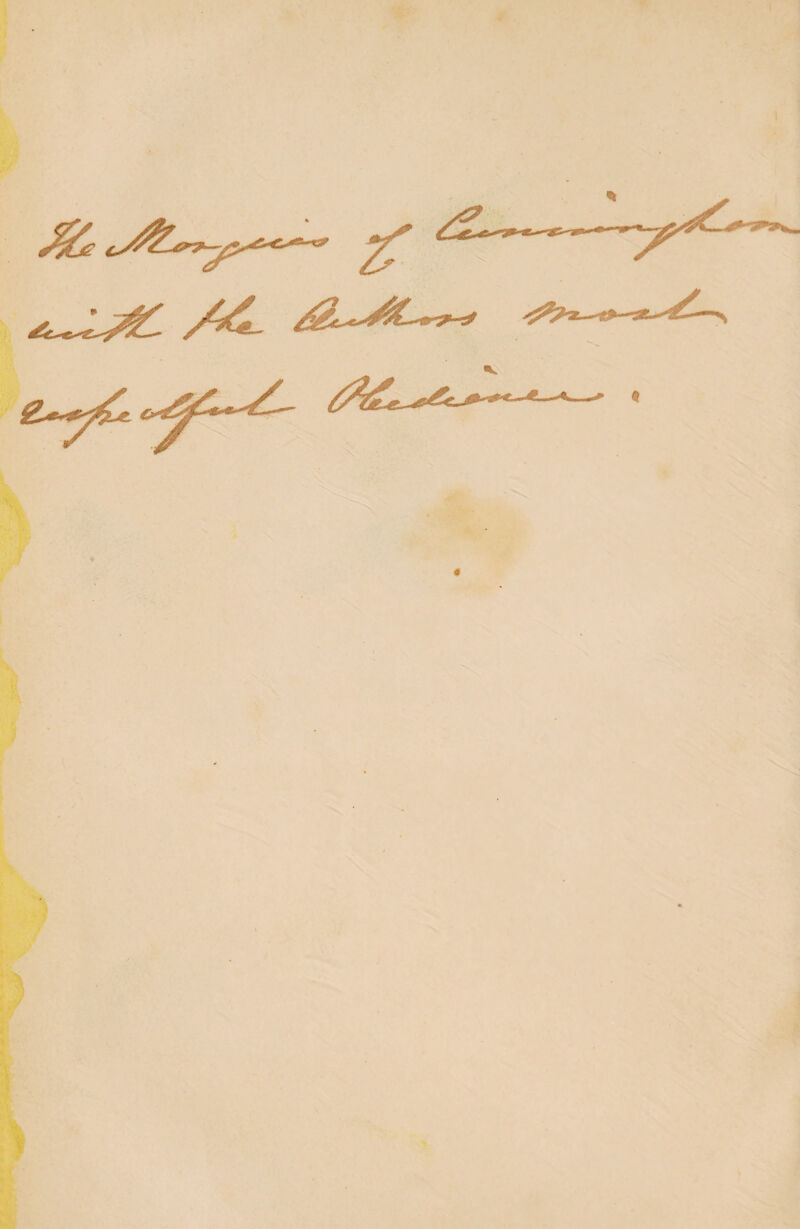 The Marquis of Cunningham
with the Authors most
respectful Obedience.